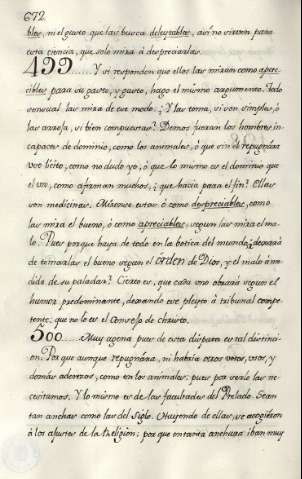 672
bles, ni el gusto que las busca deleytables, asi no sirven para
esta ciencia, que solo mira à despreciarlas.
499...... Y si responden que ellos las miran como apete-
cibles para su gasto, y gusto, hago el mismo argumento. Todo
sensual las mira de ese modo. ¿Y las toma, si son simples, ó
las arregla, si bien compuestas? Demos fueran los hombres in-
capaces de dominio, como los animales, ó que sin el repugnase
uso licito, como no dudo yo, ó que lo mismo es el dominio que
el uso, como afirman muchos; ¿que hacía para el fin? Ellas
son medicinas. Mirense estas ó como despreciables, como
las mira el bueno, ó como apreciables, segun las mira el ma-
lo. Pues porque haya de todo en la botica del mundo ¿dexará
de tomarlas el bueno segun el orden de Dios, y el malo à me-
dida de su paladar? Cierto es, que cada uno obrará segun el
humor predominante, dexando ese pleyto à tribunal compe-
tente, que no lo es el Consejo de chaustro.
500...... Muy agena pues de esta disputa es tal distinci-
on. Por que aunque repugnára, ni habria otros votos, usos, y
demás aderezos, como en los animales; pues por serlo las ne-
cesitamos. Y lo mismo es de las facultades del Prelado. Sean
tan anchas como las del Siglo. Huyendo de ellas, se acogieron
à los ajustes de la Religion; por que en tanta anchura iban muy